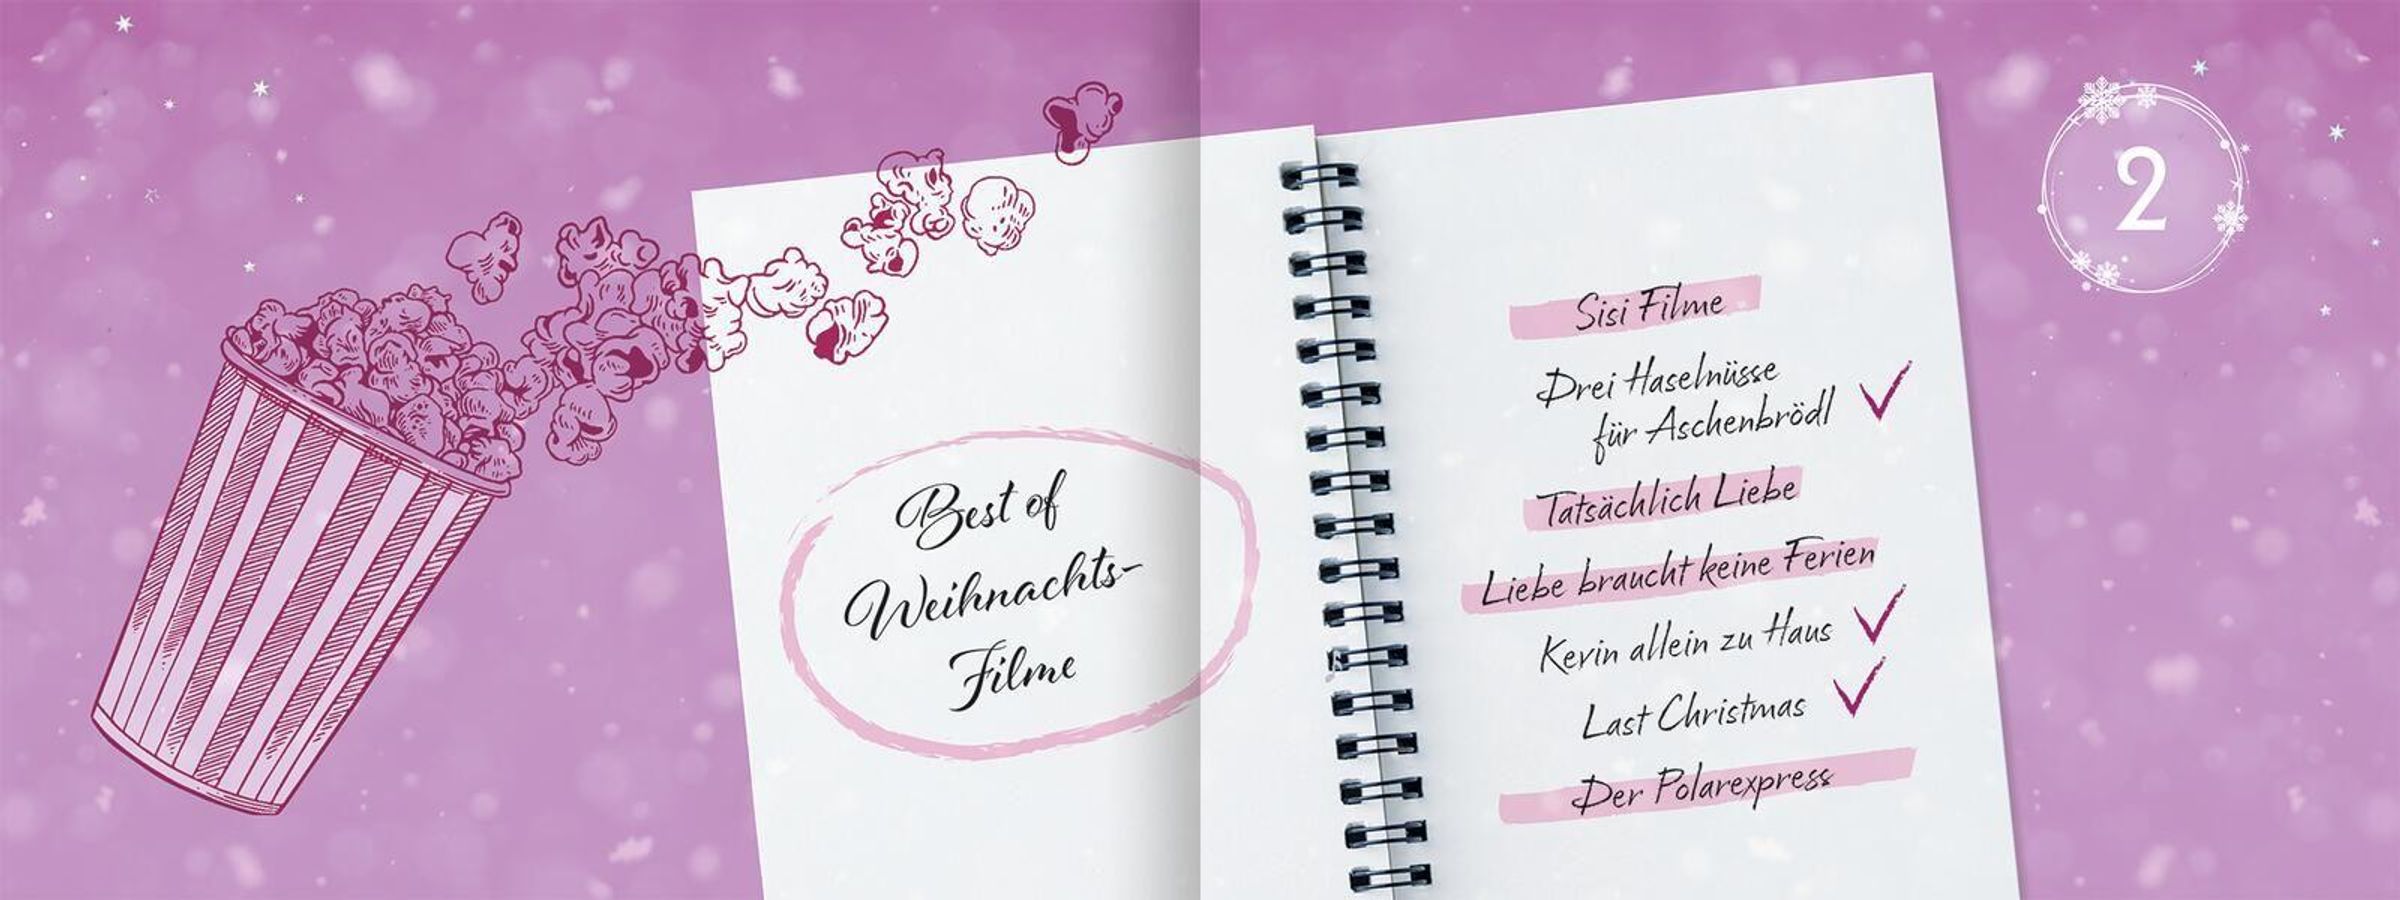 Best of
Weihnachts-
Filme
2
Sisi Filme
Drei Haselnüsse
für Aschenbrödl
Tatsächlich Liebe
Liebe braucht keine Ferien
Kevin allein zu Haus
Last Christmas
Der Polarexpress